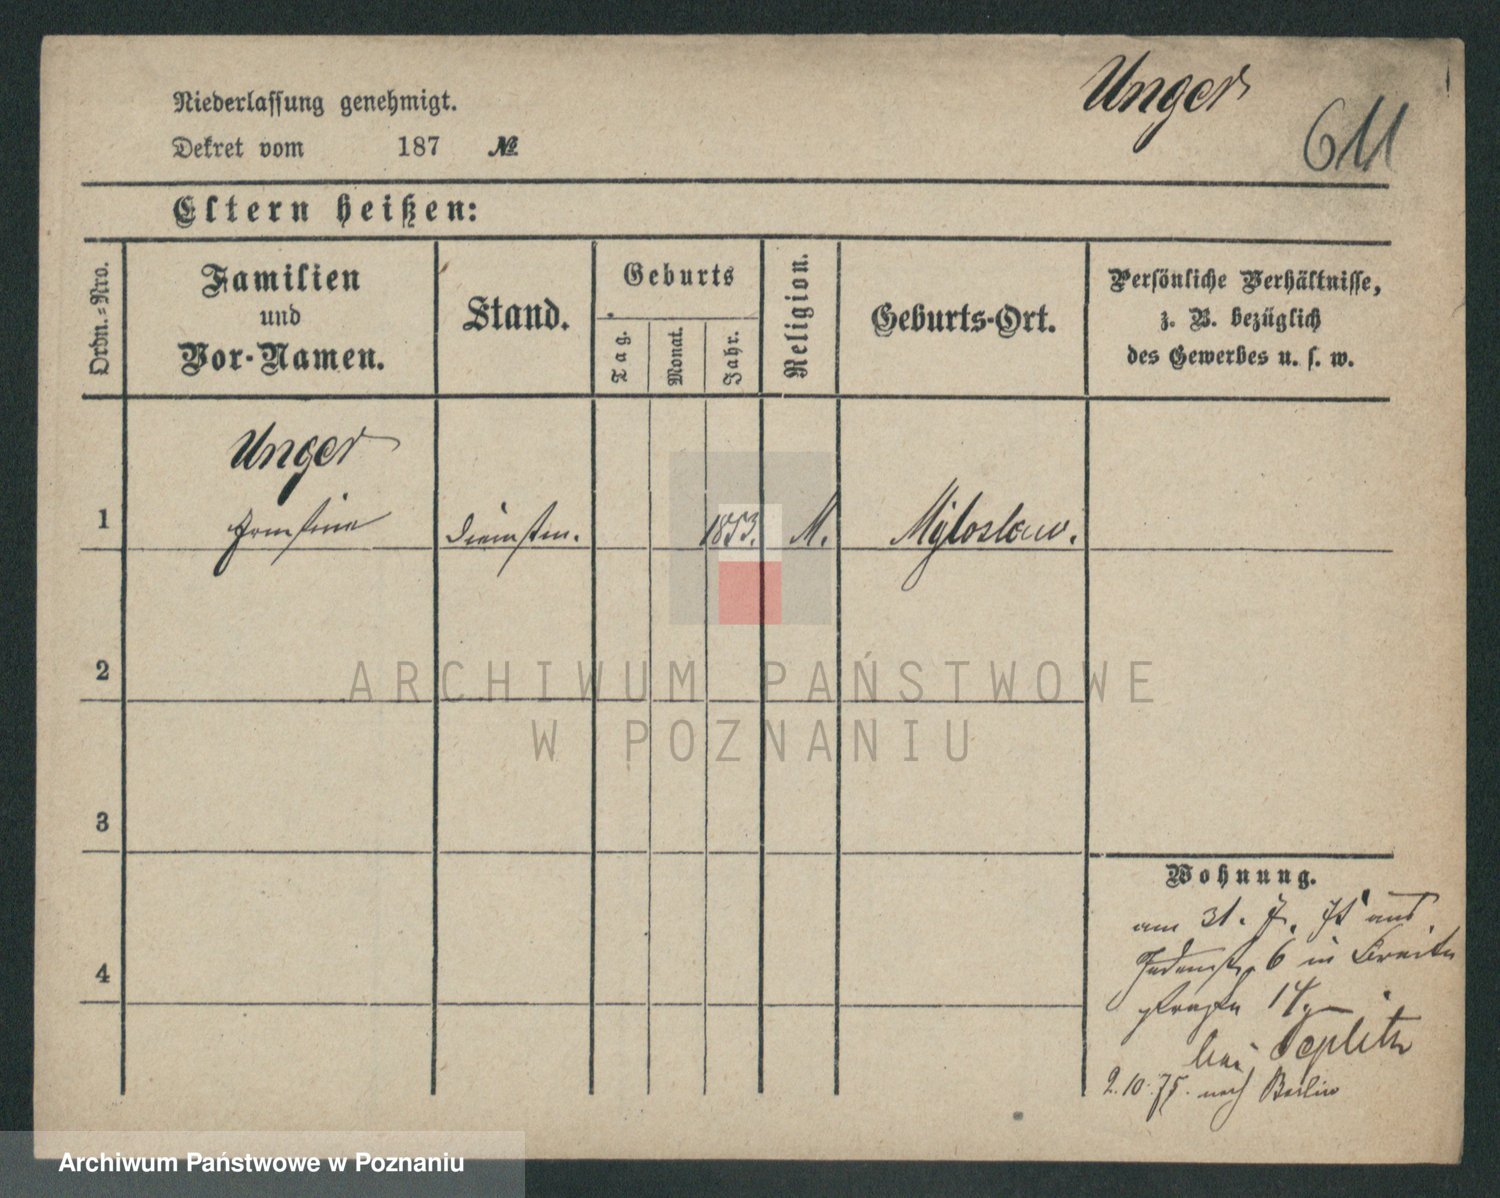 Unger
611
Niederlassung genehmigt.
Dekret vom 187 №
Eltern heißen:
Ordn.-Nro.
Familien
und
Vor-Namen.
Stand.
Geburts
Tag.
Monat.
Jahr.
Religion.
Geburts-Ort.
Persönliche Verhältnisse,
z. B. bezüglich
des Gewerbes u. s. w.
Unger
1 Ernestine 1853. M. Myloslaw.
2
3
4
Wohnung.
am 31. 7. 75 aus
Judenstr. 6 in Breite
straße 14,
bei Toplitz
2.10.75. nach Berlin
ARCHIWUM PAŃSTWOWE
W POZNANIU
Archiwum Państwowe w Poznaniu